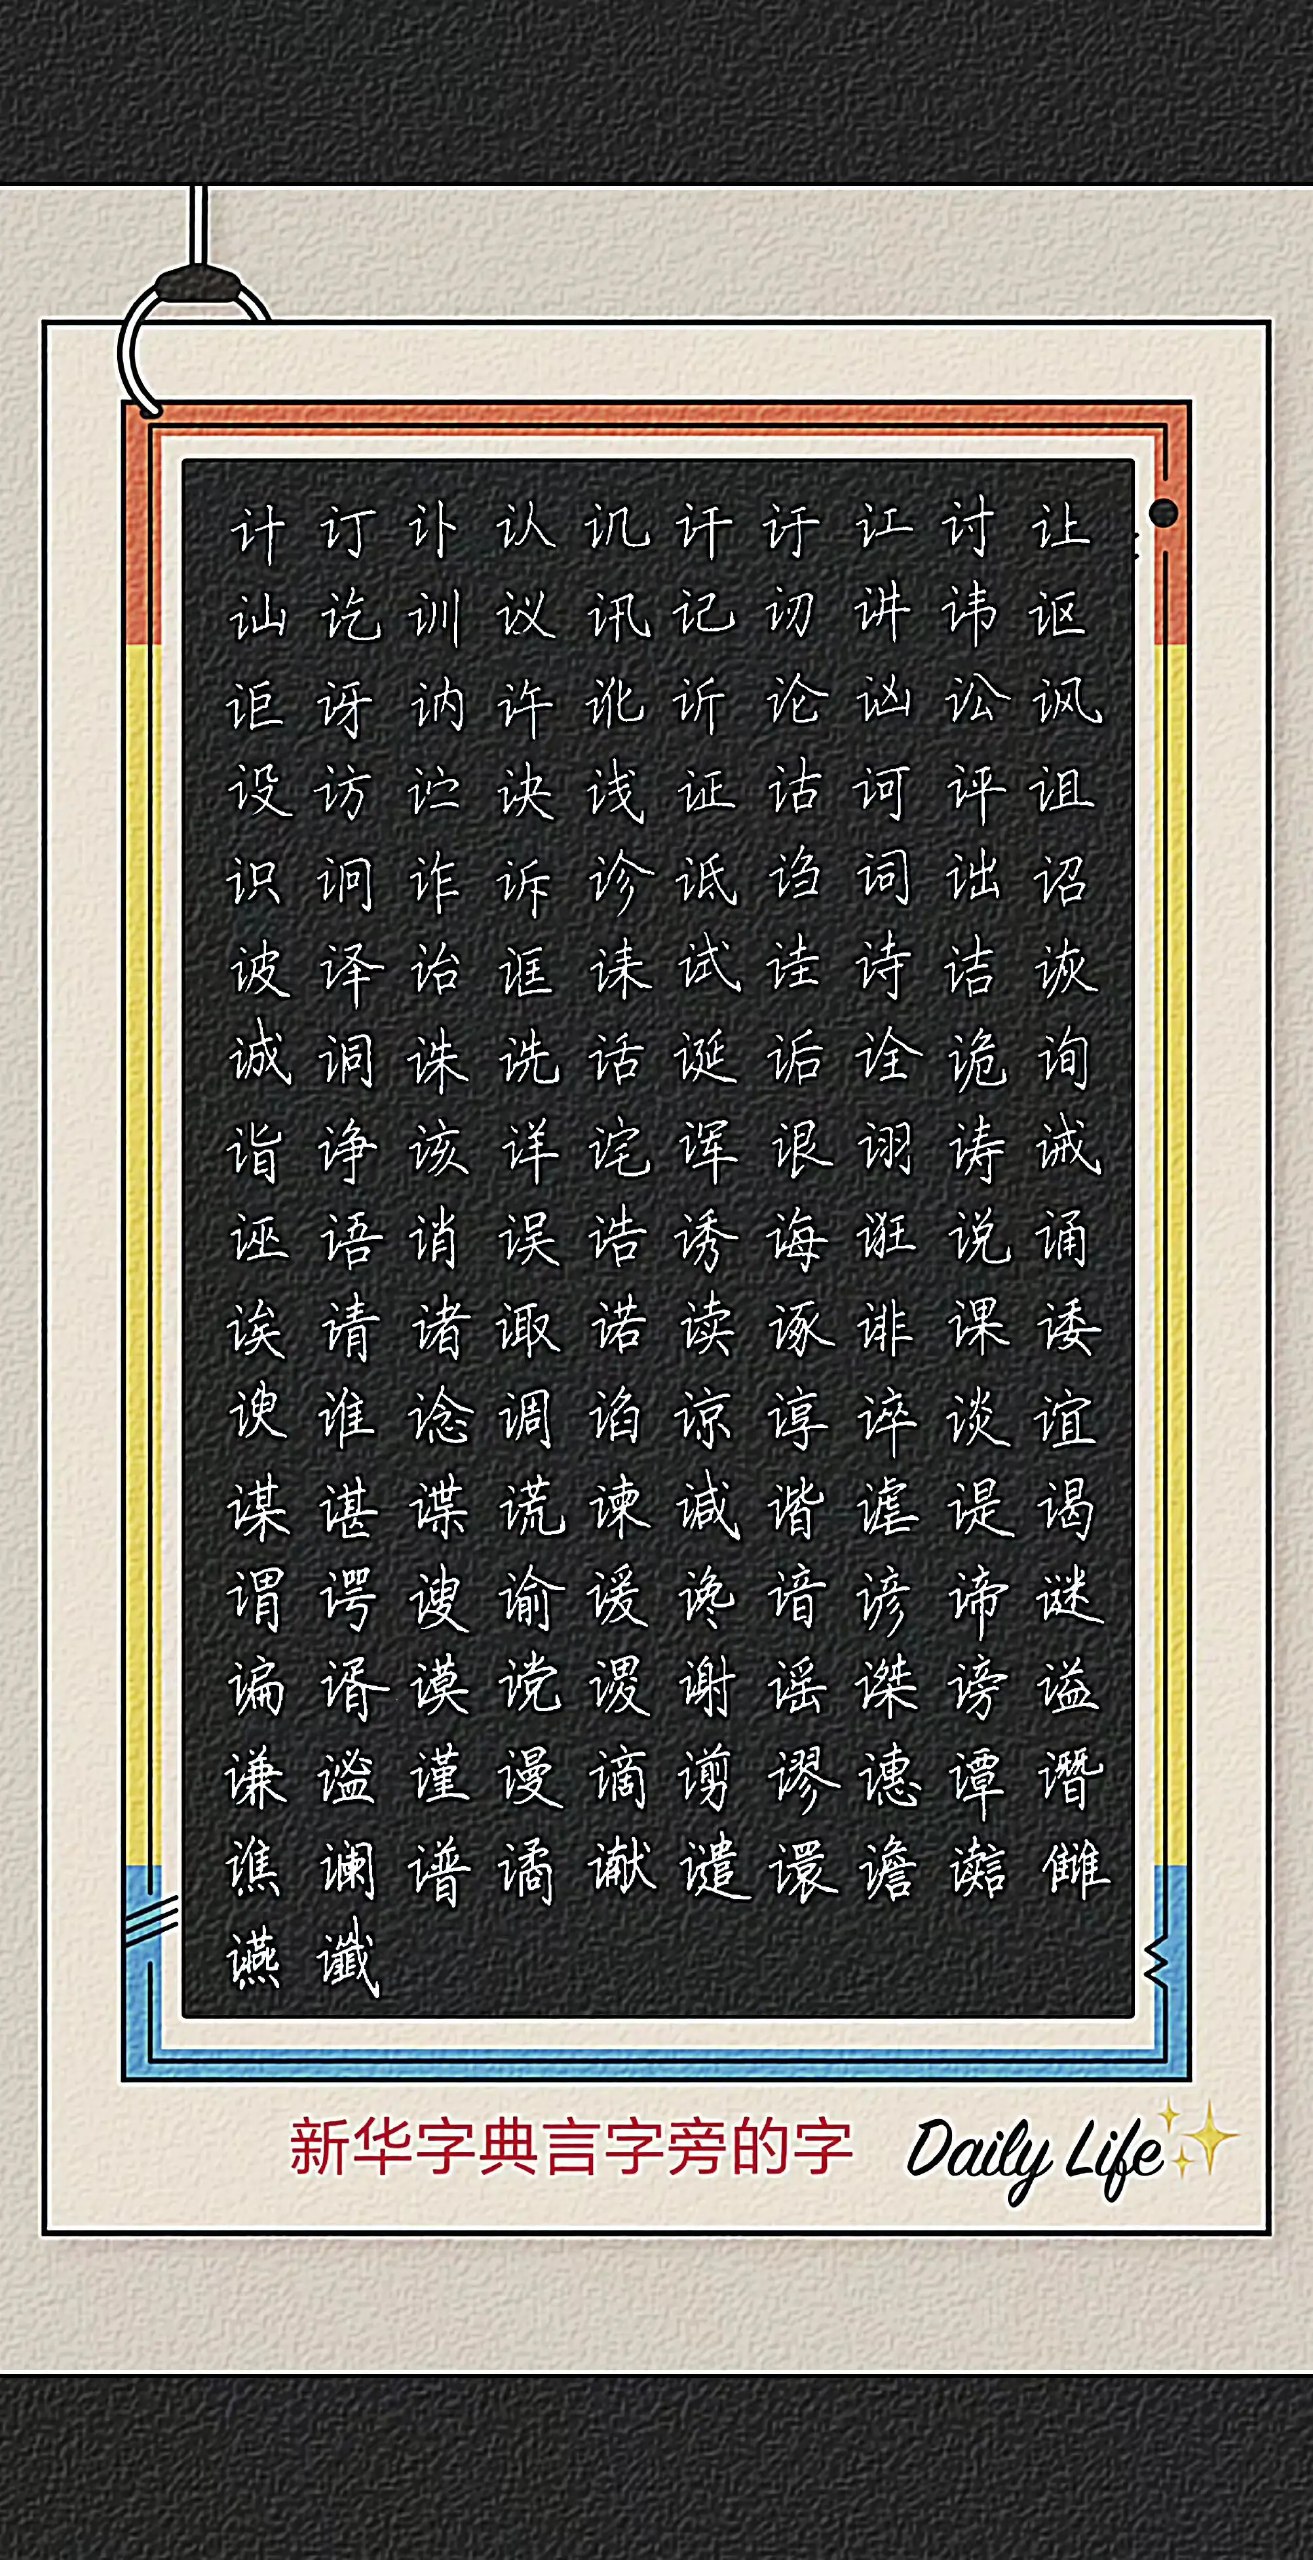 计订讣认讥讦讠于讧讨让
讪讫训议讯记讱讲讳讴
讵讶讷许讹䜣论讻讼讽
设访𬣞诀诜证诂诃评诅
识诇诈诉诊诋诌词诎诏
诐译诒诓诔试诖诗诘诙
诚诇诛诜话诞诟诠诡询
诣诤该详诧诨诩诪诫
诬语诮误诰诱诲诳说诵
诶请诸诹诺读诼诽课诿
谀谁谂调谄谅谆谇谈谊
谋谌谍谎谏𫍯谐谑𫍰谒
谓谔谡谕谖谗谙谚谛谜
谝谞谟谠谡谢谣谤谥
谦谧谨谩谪谫谬𫍲谭谮
谯谰谱谲谳谴𫍽谵雠
䜩谶
新华字典言字旁的字 Daily Life